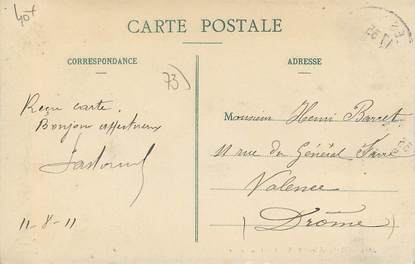 40f
CARTE POSTALE
CORRESPONDANCE
ADRESSE
73
Reçu carte.
Bonjour affectueux
11-8-11
Monsieur Henri Barret
11 rue du Général Faure
Valence
(Drôme)